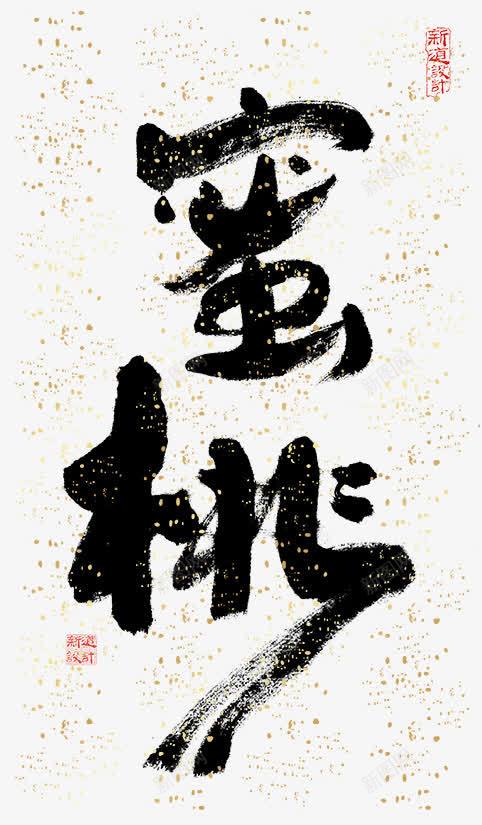 蜜桃
新道設計
新道設計